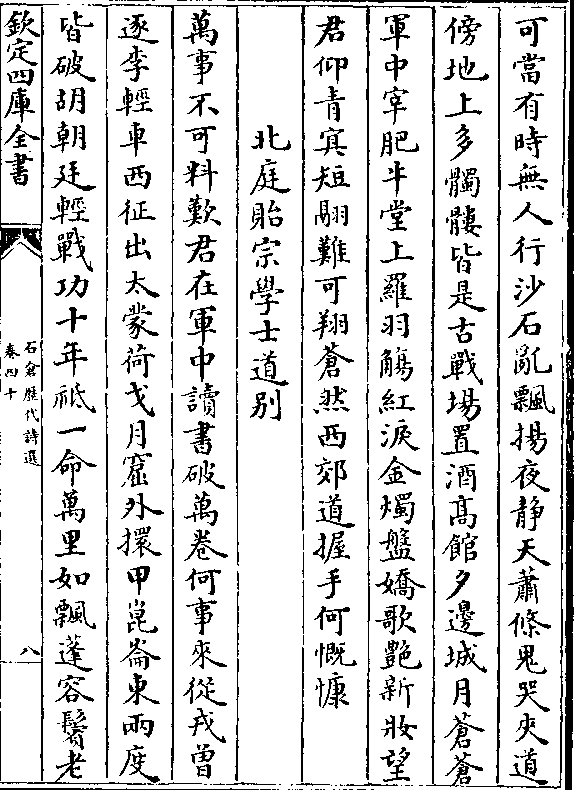 可當有時無人行沙石亂飄揚夜靜天蕭條鬼哭夾道
傍地上多髑髏皆是古戰場置酒高館夕邊城月蒼蒼
軍中宰肥牛堂上羅羽觴紅淚金燭盤嬌歌艷新妝望
君仰青冥短翮難可翔蒼然西郊道握手何慨慷
北庭貽宗學士道別
萬事不可料歎君在軍中讀書破萬卷何事來從戎曽
逐李輕車西征出太蒙荷戈月窟外擐甲崑崙東兩度
皆破胡朝廷輕戰功十年祗一命萬里如飄蓬容鬢老
欽定四庫全書
石倉歷代詩選
卷四十
八